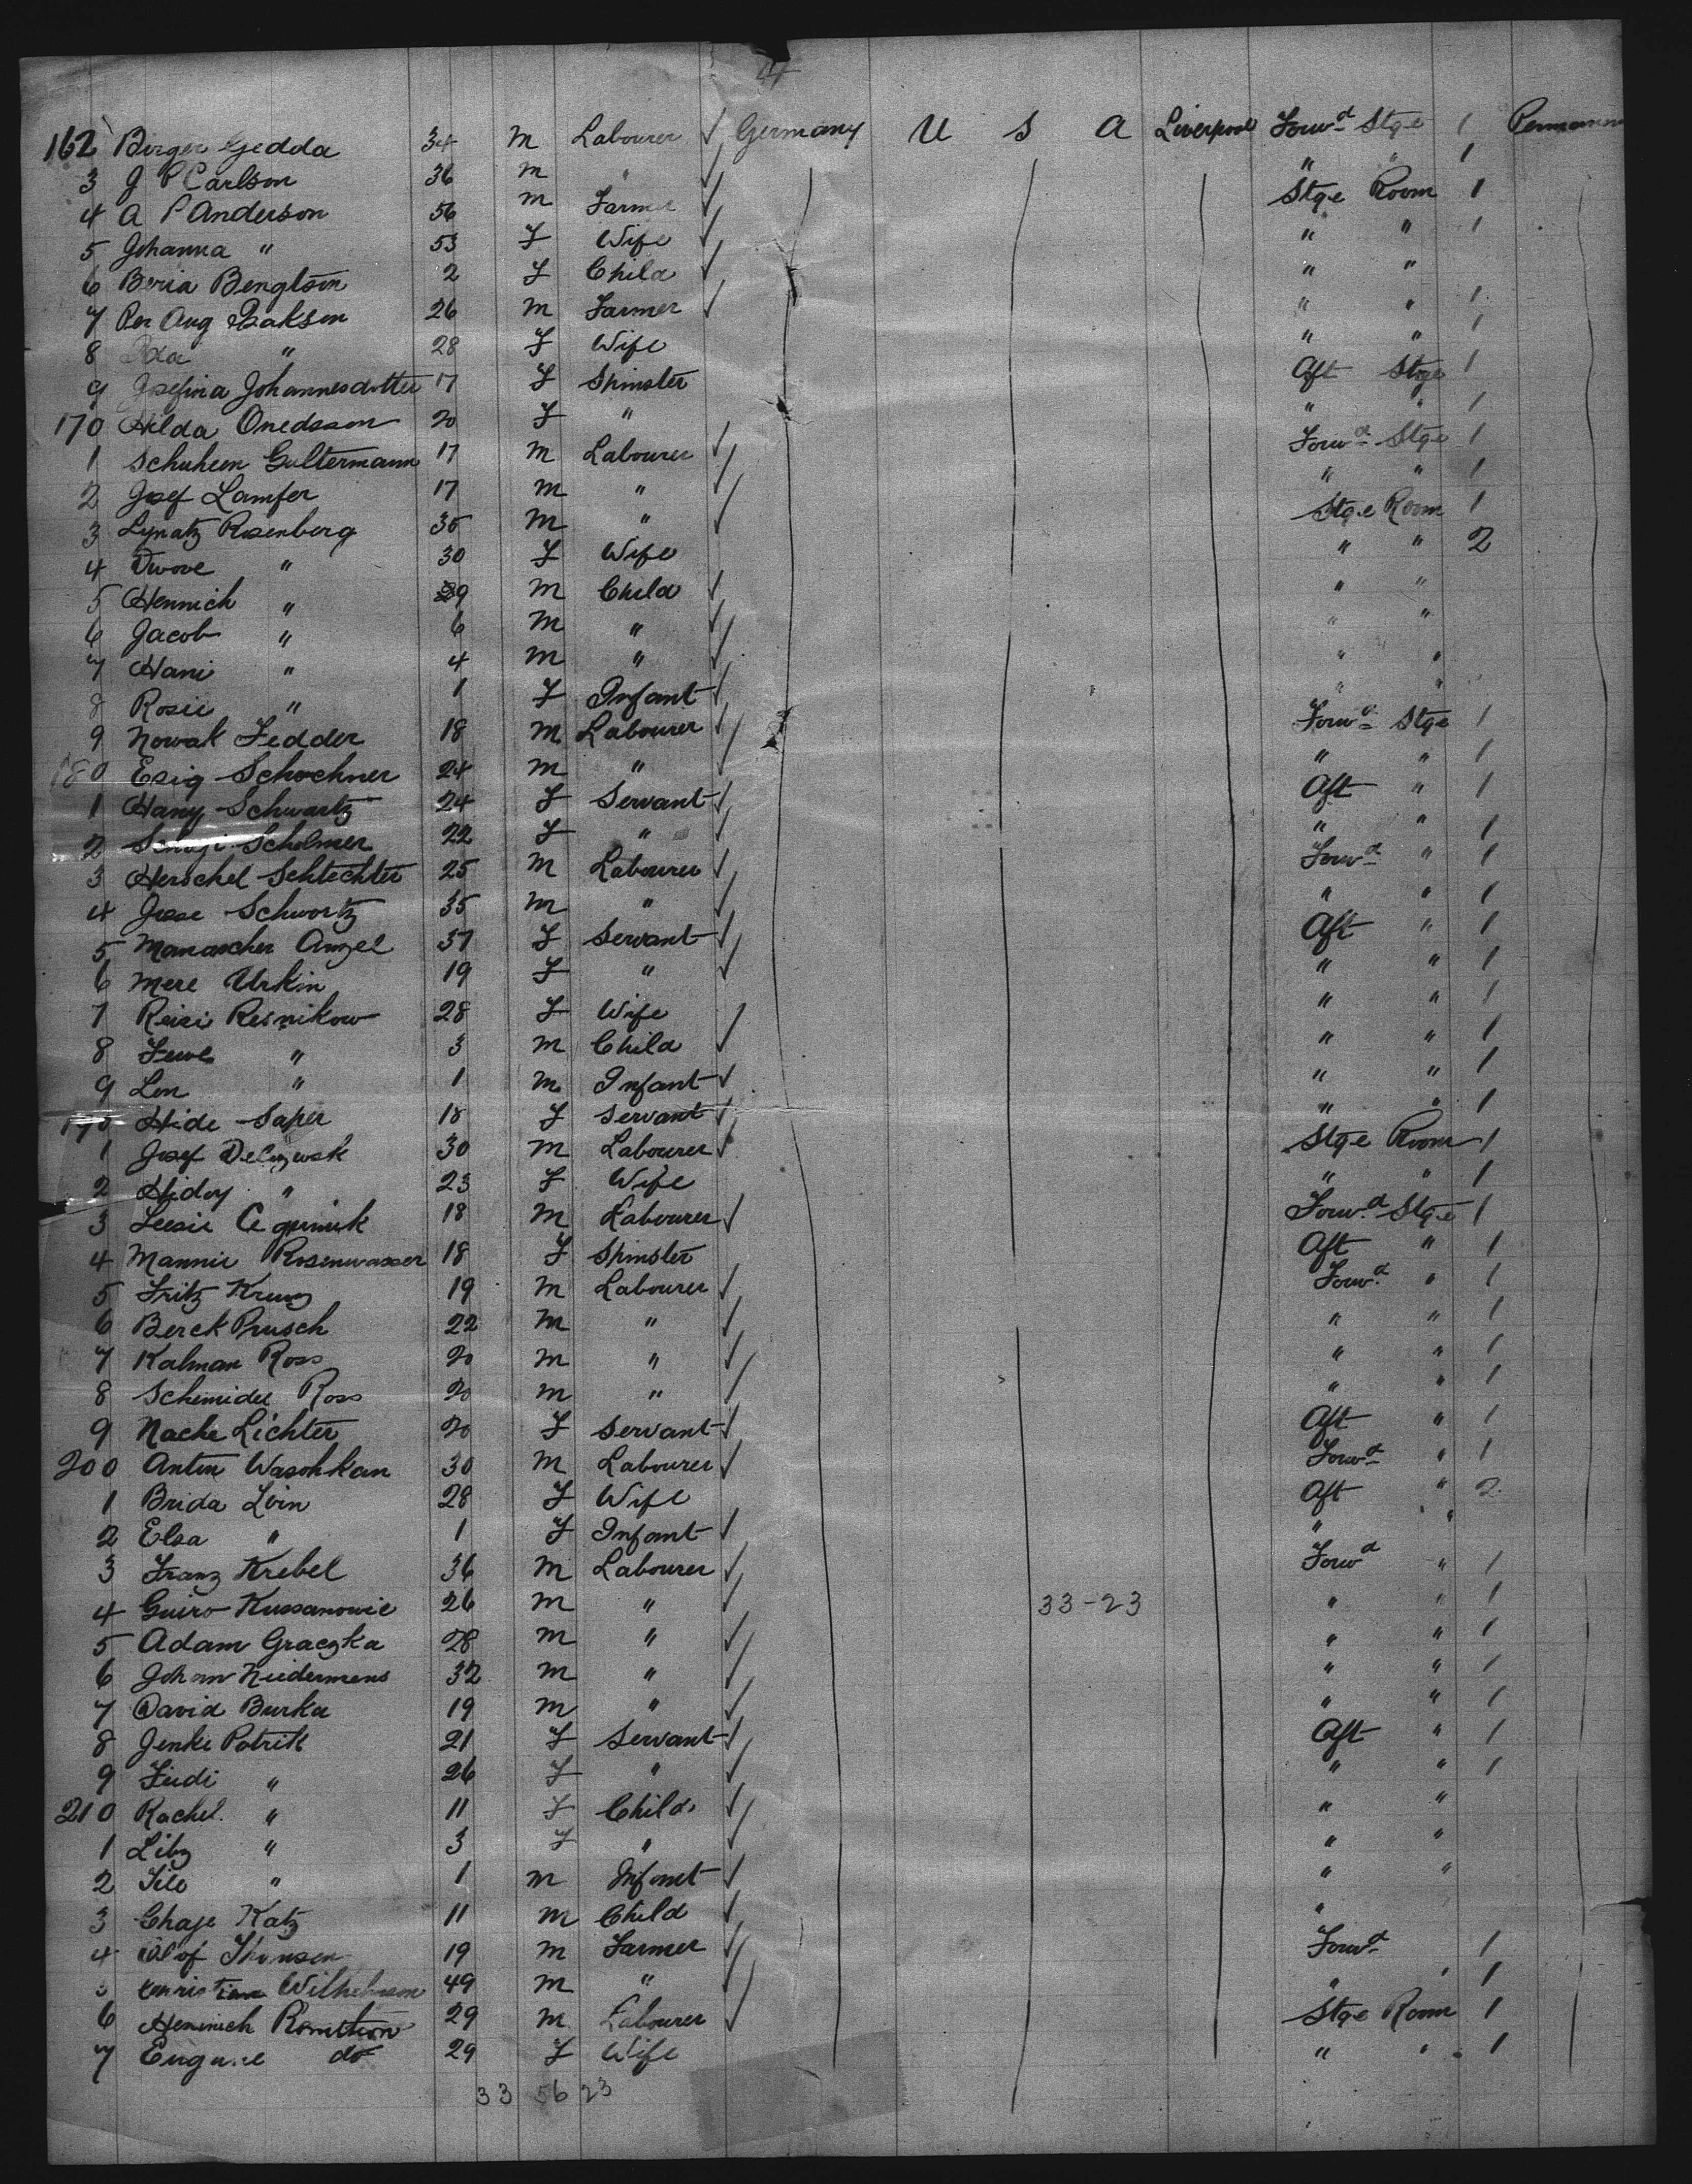 4
162 Birger Gedda 34 M Labourer ✓ Germany U S A Liverpool Forwd Stge 1
3 J P Carlson 36 M " ✓ " " 1
4 A P Anderson 56 M Farmer ✓ Stge Room 1
5 Johanna " 53 F Wife ✓ " " 1
6 Beria Bengtson 2 F Child ✓ " "
7 Per Aug Isakson 26 M Farmer ✓ " " 1
8 Ida " 28 F Wife " " 1
9 Josefina Johannesdotter 17 F Spinster Aft Stge 1
170 Hilda Onedsson 20 F " " " 1
1 Schuhem Gultermann 17 M Labourer ✓ Forwd Stge 1
2 Josef Lamfer 17 M " ✓ " " 1
3 Lynatz Rosenberg 35 M " ✓ Stge Room 1
4 Dwore " 30 F Wife " " 2
5 Hennich " 9 M Child ✓ " "
6 Jacob " 6 M " ✓ " "
7 Hani " 4 M " ✓ " "
8 Rosie " 1 F Infant ✓ " "
9 Nowak Fedder 18 M Labourer ✓ Forwd Stge 1
180 Esig Schochner 24 M " ✓ " " 1
1 Hany Schwartz 24 F Servant ✓ Aft " 1
2 Schelmer 22 F " ✓ " " 1
3 Herschel Schlechter 25 M Labourer ✓ Forwd " 1
4 Josse Schwortz 35 M " ✓ " " 1
5 Manascher Anzel 37 F Servant ✓ Aft " 1
6 Mere Urkin 19 F " ✓ " " 1
7 Reisi Resnikow 28 F Wife " " 1
8 Fewe " 3 M Child ✓ " " 1
9 Len " 1 M Infant ✓ " " 1
190 Hide Saper 18 F Servant ✓ " " 1
1 Josef 30 M Labourer ✓ Stge Room 1
2 Hidoy " 23 F Wife " " 1
3 Leesie 18 M Labourer ✓ Forwd Stge 1
4 Mannie Rosenwasser 18 F Spinster Aft " 1
5 Fritz Krung 19 M Labourer ✓ Forwd " 1
6 Berck Prusch 22 M " ✓ " " 1
7 Kalman Ross 20 M " ✓ " " 1
8 Schemidel Ross 20 M " ✓ " " 1
9 Nache Lichter 20 F Servant ✓ Aft " 1
200 Anton Waschkan 30 M Labourer ✓ Forwd " 1
1 Brida Loin 28 F Wife Aft " 2
2 Elsa " 1 F Infant ✓ " "
3 Franz Krebel 36 M Labourer ✓ Forwd " 1
4 Guiro Kussanowic 26 M " ✓ 33-23 " " 1
5 Adam Graczka 28 M " ✓ " " 1
6 Johann Niedermens 32 M " ✓ " " 1
7 David Burka 19 M " ✓ " " 1
8 Jenke Potrik 21 F Servant ✓ Aft " 1
9 Fiedi " 26 F " ✓ " " 1
210 Rachel " 11 F Child ✓ " "
1 Liby " 3 F " ✓ " "
2 " 1 M Infant ✓ " "
3 Chaje Katz 11 M Child ✓ "
4 Olof Thomsen 19 M Farmer ✓ Forwd 1
5 Christian Wilhelmson 49 M " ✓ " " 1
6 Heinrich 29 M Labourer ✓ Stge Room 1
7 Eugene do 29 F Wife " " 1
33 56 23